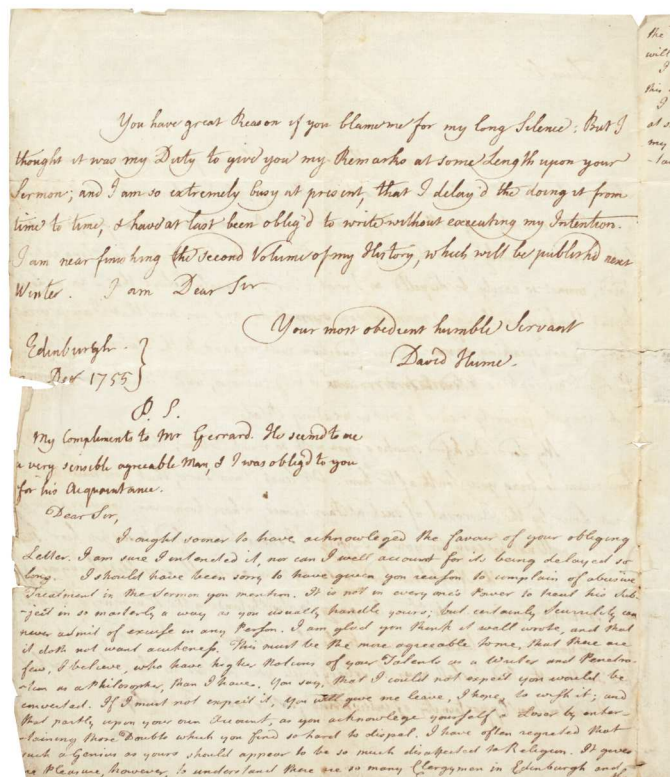 the
will
I
this
I
at s
my
-ta
You have great Reason if you blame me for my long Silence: But I
thought it was my Duty to give you my Remarks at some Length upon your
Sermon; and I am so extremely busy at present, that I delay'd the doing it from
time to time, & have at last been oblig'd to write without executing my Intention.
I am near finishing the second Volume of my History, which will be publish'd next
Winter. I am Dear Sir
Your most obedient humble Servant
David Hume.
Edinburgh.
1755
P. S.
My Compliments to Mr Gerrard. He seem'd to me
a very sensible agreeable Man, & I was oblig'd to you
for his Acquaintance.
Dear Sir,
I ought sooner to have acknowleged the favour of your obliging
Letter. I am sure I intended it, nor can I well account for its being delayed so
long. I should have been sorry to have given you reason to complain of abusive
Treatment in the Sermon you mention. It is not in every one's Power to treat his Sub-
-ject in so masterly a way as you usually handle yours; but certainly Scurrility can
never admit of excuse in any Person. I am glad you think it well wrote, and that
it doth not want acuteness. This must be the more agreeable to me, that there are
few, I believe, who have higher Notions of your Talents as a Writer and Penetra-
-tion as a Philosopher, than I have. You say, that I could not expect you would be
converted. If I must not expect it, you will give me leave, I hope, to wish it; and
that partly upon your own Account, as you acknowlege yourself a Loser by enter-
-taining those Doubts which you find so hard to dispel. I have often regretted that
such a Genius as yours should appear to be so much disaffected to Religion. It gives
me Pleasure, however, to understand there are so many Clergymen in Edinburgh and